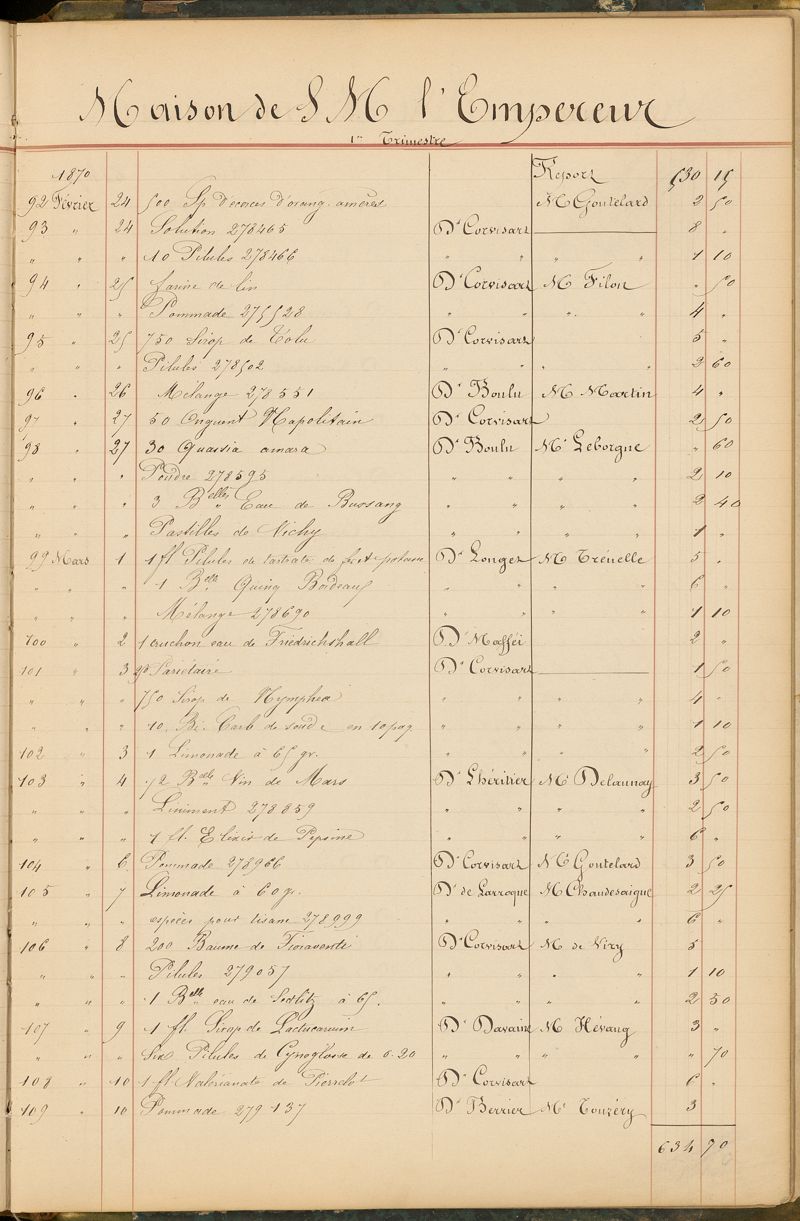 Maison de S M l'Empereur
1er Trimestre
1870 Report 530 15
92 Février 24 500 Sp d'écorces d'orang. amères M Goutelard 2 50
93 " 24 Solution 278465 Dr Corvisart 8 "
" " " 10 Pilules 278466 " " " " 1 10
94 " 25 farine de lin Dr Corvisart M Filon " 50
" " " Pommade 275528 " " " " 4 "
95 " 25 750 Sirop de Tolu Dr Corvisart 5 "
" " " Pilules 278502 " " " " 2 60
96 " 26 Mélange 278551 Dr Boulu M Martin 4 "
97 " 27 50 Onguent Napolitain Dr Corvisart 2 50
98 " 27 30 Quassia amara Dr Boulu Mr Leborgne " 60
" " " Poudre 278595 " " " " 2 10
" " " 3 Belles Eau de Bussang " " " " 2 40
" " " Pastilles de Vichy " " " " 1 "
99 Mars 1 1 fl Pilules de tartrate de fer et potasse Dr Longet M Trévelle 5 "
" " " 1 Belle Quinq Bordeaux " " 6 "
" " " Mélange 278690 " " " 1 10
100 " 2 1 cruchon eau de Friedrichshall Dr Mafféi 2 "
101 " 3 Pariétaire Dr Corvisart 1 50
" " " 750 Sirop de Nymphea " " " " 4 "
" " " 10 Bi. Carb de soude en 10 paq " " " " 1 10
102 " 3 1 Limonade à 65 gr. " " " 2 50
103 " 4 1/2 Belle Vin de Mars Dr Lhéritier Mr Delaunay 3 50
" " " Liniment 278859 " " " " 2 50
" " " 1 fl. Elixir de Pepsine " " " " 6 "
104 " 6 Pommade 278966 Dr Corvisart Mr Goutelard 3 50
105 " 7 Limonade à 60 gr. Dr de Larroque M Chaudesaigue 2 25
" " " espèces pour tisane 278999 " " " " 6 "
106 " 8 200 Baume de Fioraventi Dr Corvisart M de Viry 5
" " " Pilules 279057 " " " " 1 10
" " " 1 Belle eau de Sedlitz à 65. " " " " 2 50
107 " 9 1 fl. Sirop de Lactucarium Dr Davaine M Hévang 3 "
" " " Six Pilules de Cynoglosse de 0.20 " " " " " 70
108 " 10 1 fl Valérianate de Pierrelot Dr Corvisart 6 "
109 " 10 Pommade 279137 Dr Berrier Mr Touzéry 3
634 70